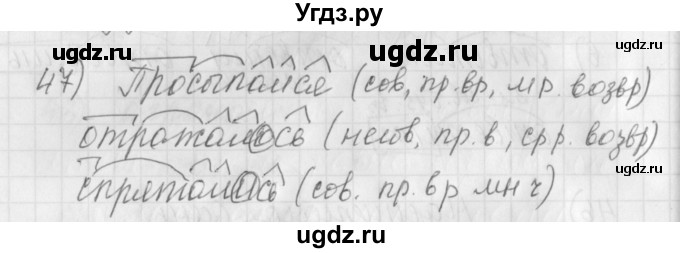 Угдз.ру
ugdz.ru ugdz.ru
47) Просыпался (сов, пр.вр, м р. возвр)
отражалось (несов, пр.в, ср р. возвр)
спрятались (сов. пр.вр мн ч)
ugdz.ru ugdz.ru
ugdz.ru